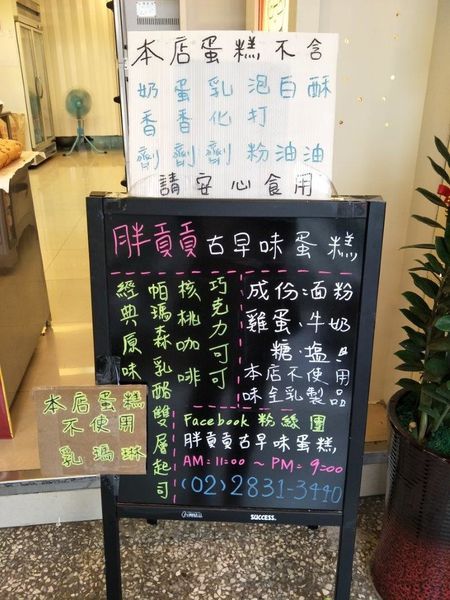 本店蛋糕不含
奶蛋乳泡白酥
香香化打
劑劑劑粉油油
請安心食用
胖貢貢古早味蛋糕
經典原味
帕瑪森乳酪雙層起司
核桃咖啡
巧克力可可
成份:麵粉
雞蛋、牛奶
糖、鹽!
本店不使用
味全乳製品
本店蛋糕
不使用
乳瑪琳
Facebook 粉絲團
胖貢貢古早味蛋糕
AM:11:00 ~ PM:9:00
(02)2831-3440
SUCCESS.